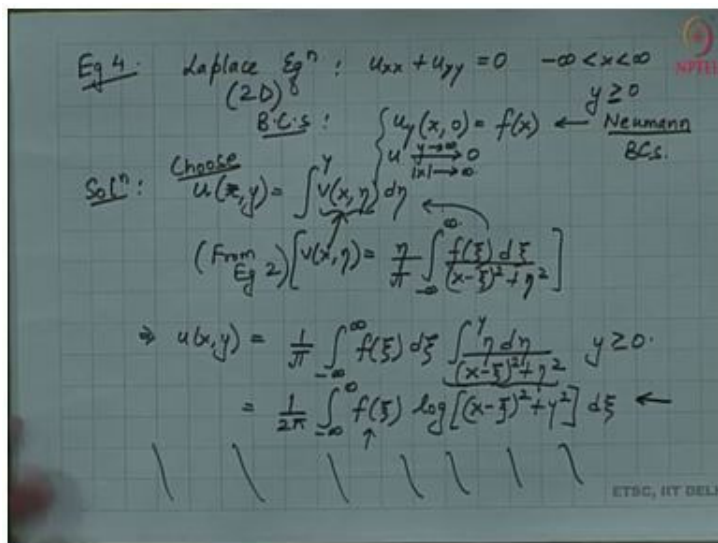 Eg 4. Laplace Eqⁿ: u_xx + u_yy = 0 -∞ < x < ∞
(2D) y ≥ 0
B.C.s: { u_y(x, 0) = f(x) ← Neumann B.C.s.
u → 0 y→∞ |x|→∞
Solⁿ: Choose u(x,y) = ∫^y v(x, η) dη
(From Eg 2) [v(x, η) = η/π ∫_{-∞}^{∞} f(ξ) dξ / ((x-ξ)² + η²)]
⇒ u(x,y) = 1/π ∫_{-∞}^{∞} f(ξ) dξ ∫^y η dη / ((x-ξ)² + η²) y ≥ 0.
= 1/2π ∫_{-∞}^{∞} f(ξ) log[(x-ξ)² + y²] dξ ←
NPTEL
ETSC, IIT DEL